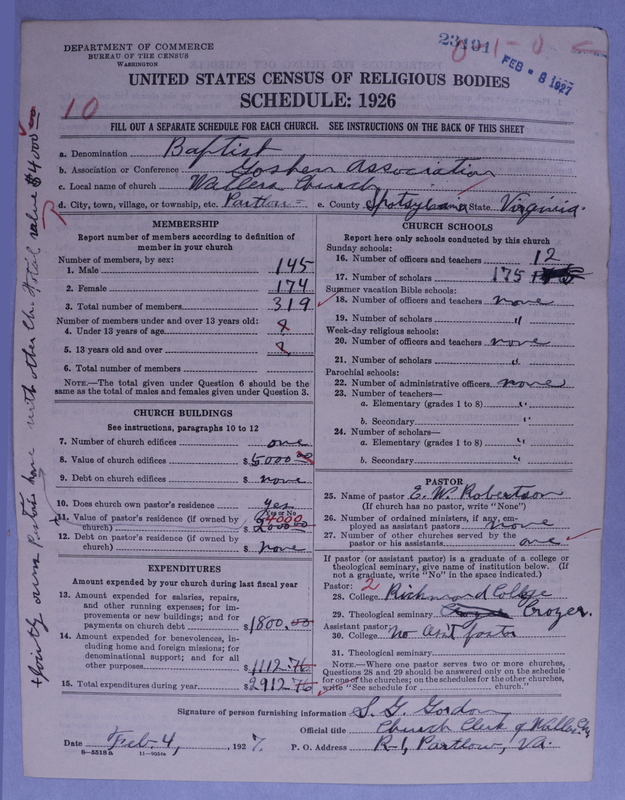 DEPARTMENT OF COMMERCE
BUREAU OF THE CENSUS
WASHINGTON
23101
FEB - 8 1927
UNITED STATES CENSUS OF RELIGIOUS BODIES
SCHEDULE: 1926
10
FILL OUT A SEPARATE SCHEDULE FOR EACH CHURCH. SEE INSTRUCTIONS ON THE BACK OF THIS SHEET
a. Denomination Baptist
b. Association or Conference Goshen Association
c. Local name of church Wallers Church
d. City, town, village, or township, etc. Partlow e. County Spotsylvania State Virginia.
MEMBERSHIP
Report number of members according to definition of
member in your church
Number of members, by sex:
1. Male 145
2. Female 174
3. Total number of members 319
Number of members under and over 13 years old:
4. Under 13 years of age
5. 13 years old and over
6. Total number of members
NOTE.—The total given under Question 6 should be
same as the total of males and females given under Question 3.
CHURCH BUILDINGS
See instructions, paragraphs 10 to 12
7. Number of church edifices one
8. Value of church edifices $5000 00
9. Debt on church edifices $ none
10. Does church own pastor's residence? yes
Yes or No
11. Value of pastor's residence (if owned by
church) $ 4000
12. Debt on pastor's residence (if owned by
church) $ none
EXPENDITURES
Amount expended by your church during last fiscal year
13. Amount expended for salaries, repairs,
and other running expenses; for im-
provements or new buildings; and for
payments on church debt $1800.00
14. Amount expended for benevolences, in-
cluding home and foreign missions; for
denominational support; and for all
other purposes $1112.76
15. Total expenditures during year $2912.76
CHURCH SCHOOLS
Report here only schools conducted by this church
Sunday schools:
16. Number of officers and teachers 12
17. Number of scholars 175
Summer vacation Bible schools:
18. Number of officers and teachers none
19. Number of scholars "
Week-day religious schools:
20. Number of officers and teachers none
21. Number of scholars "
Parochial schools:
22. Number of administrative officers none
23. Number of teachers—
a. Elementary (grades 1 to 8) "
b. Secondary "
24. Number of scholars—
a. Elementary (grades 1 to 8) "
b. Secondary "
PASTOR
25. Name of pastor E. W. Robertson
(If church has no pastor, write "None")
26. Number of ordained ministers, if any, em-
ployed as assistant pastors none
27. Number of other churches served by the
pastor or his assistants one
If pastor (or assistant pastor) is a graduate of a college or
theological seminary, give name of institution below. (If
not a graduate, write "No" in the space indicated.)
Pastor: 2
28. College Richmond College
29. Theological seminary Crozer.
Assistant pastor:
30. College No Asst pastor
31. Theological seminary
NOTE.—Where one pastor serves two or more churches,
Questions 28 and 29 should be answered only on the schedule
for one of the churches; on the schedules for the other churches,
write "See schedule for church."
Signature of person furnishing information S. G. Gordon
Official title Church Clerk of Waller Ch,
Date Feb. 4, 1927 P. O. Address R-1, Partlow, Va.
8-5518 a 11-9054a
+ Jointly owns Pastors home with other Ch. Total value $4000